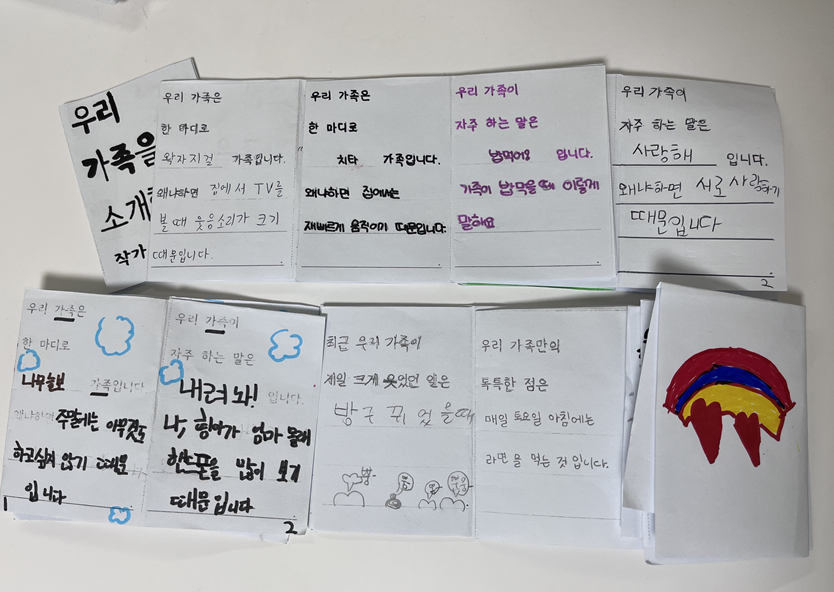 우리
가족을
소개
작가
우리 가족은
한 마디로
왁자지껄 가족입니다.
왜냐하면 집에서 TV를
볼 때 웃음소리가 크기
때문입니다.
우리 가족은
한 마디로
치타 가족입니다.
왜냐하면 집에서는
재빠르게 움직이기 때문입니다.
우리 가족이
자주 하는 말은
밥먹어요 입니다.
가족이 밥먹을때 이렇게
말해요
우리 가족이
자주 하는 말은
사랑해 입니다.
왜냐하면 서로 사랑하기
때문입니다
2
우리 가족은
한 마디로
나무늘보 가족입니다
왜냐하면 주말에는 아무것도
하고싶지 않기 때문
입니다
1
우리 가족이
자주 하는 말은
내려놔! 입니다.
나, 형아가 엄마 몰래
핸드폰을 많이 보기
때문입니다
2
최근 우리 가족이
제일 크게 웃었던 일은
방구 뀌었을때
뿡
우리 가족만의
독특한 점은
매일 토요일 아침에는
라면을 먹는 것 입니다.